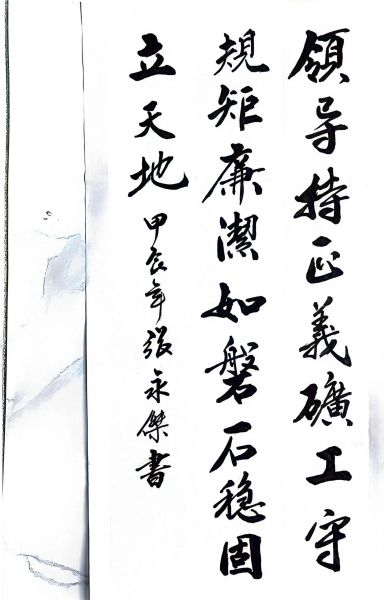 領导持正義礦工守
規矩廉潔如磐石稳固
立天地
甲辰年張永傑書